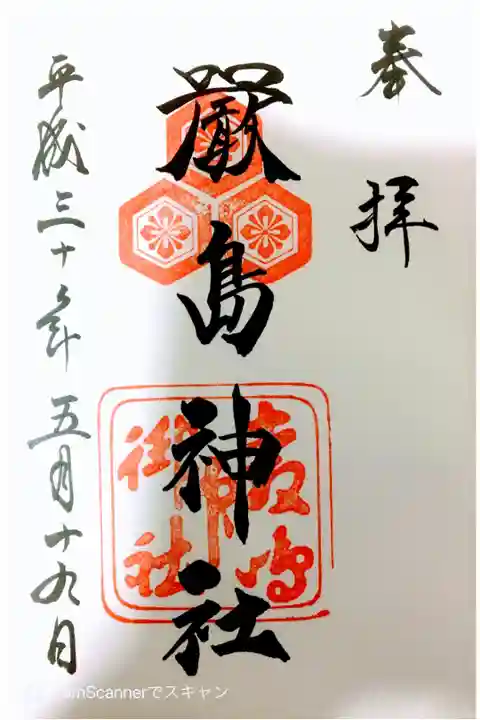 奉拝
厳島神社
平成三十年五月十九日
CamScannerでスキャン